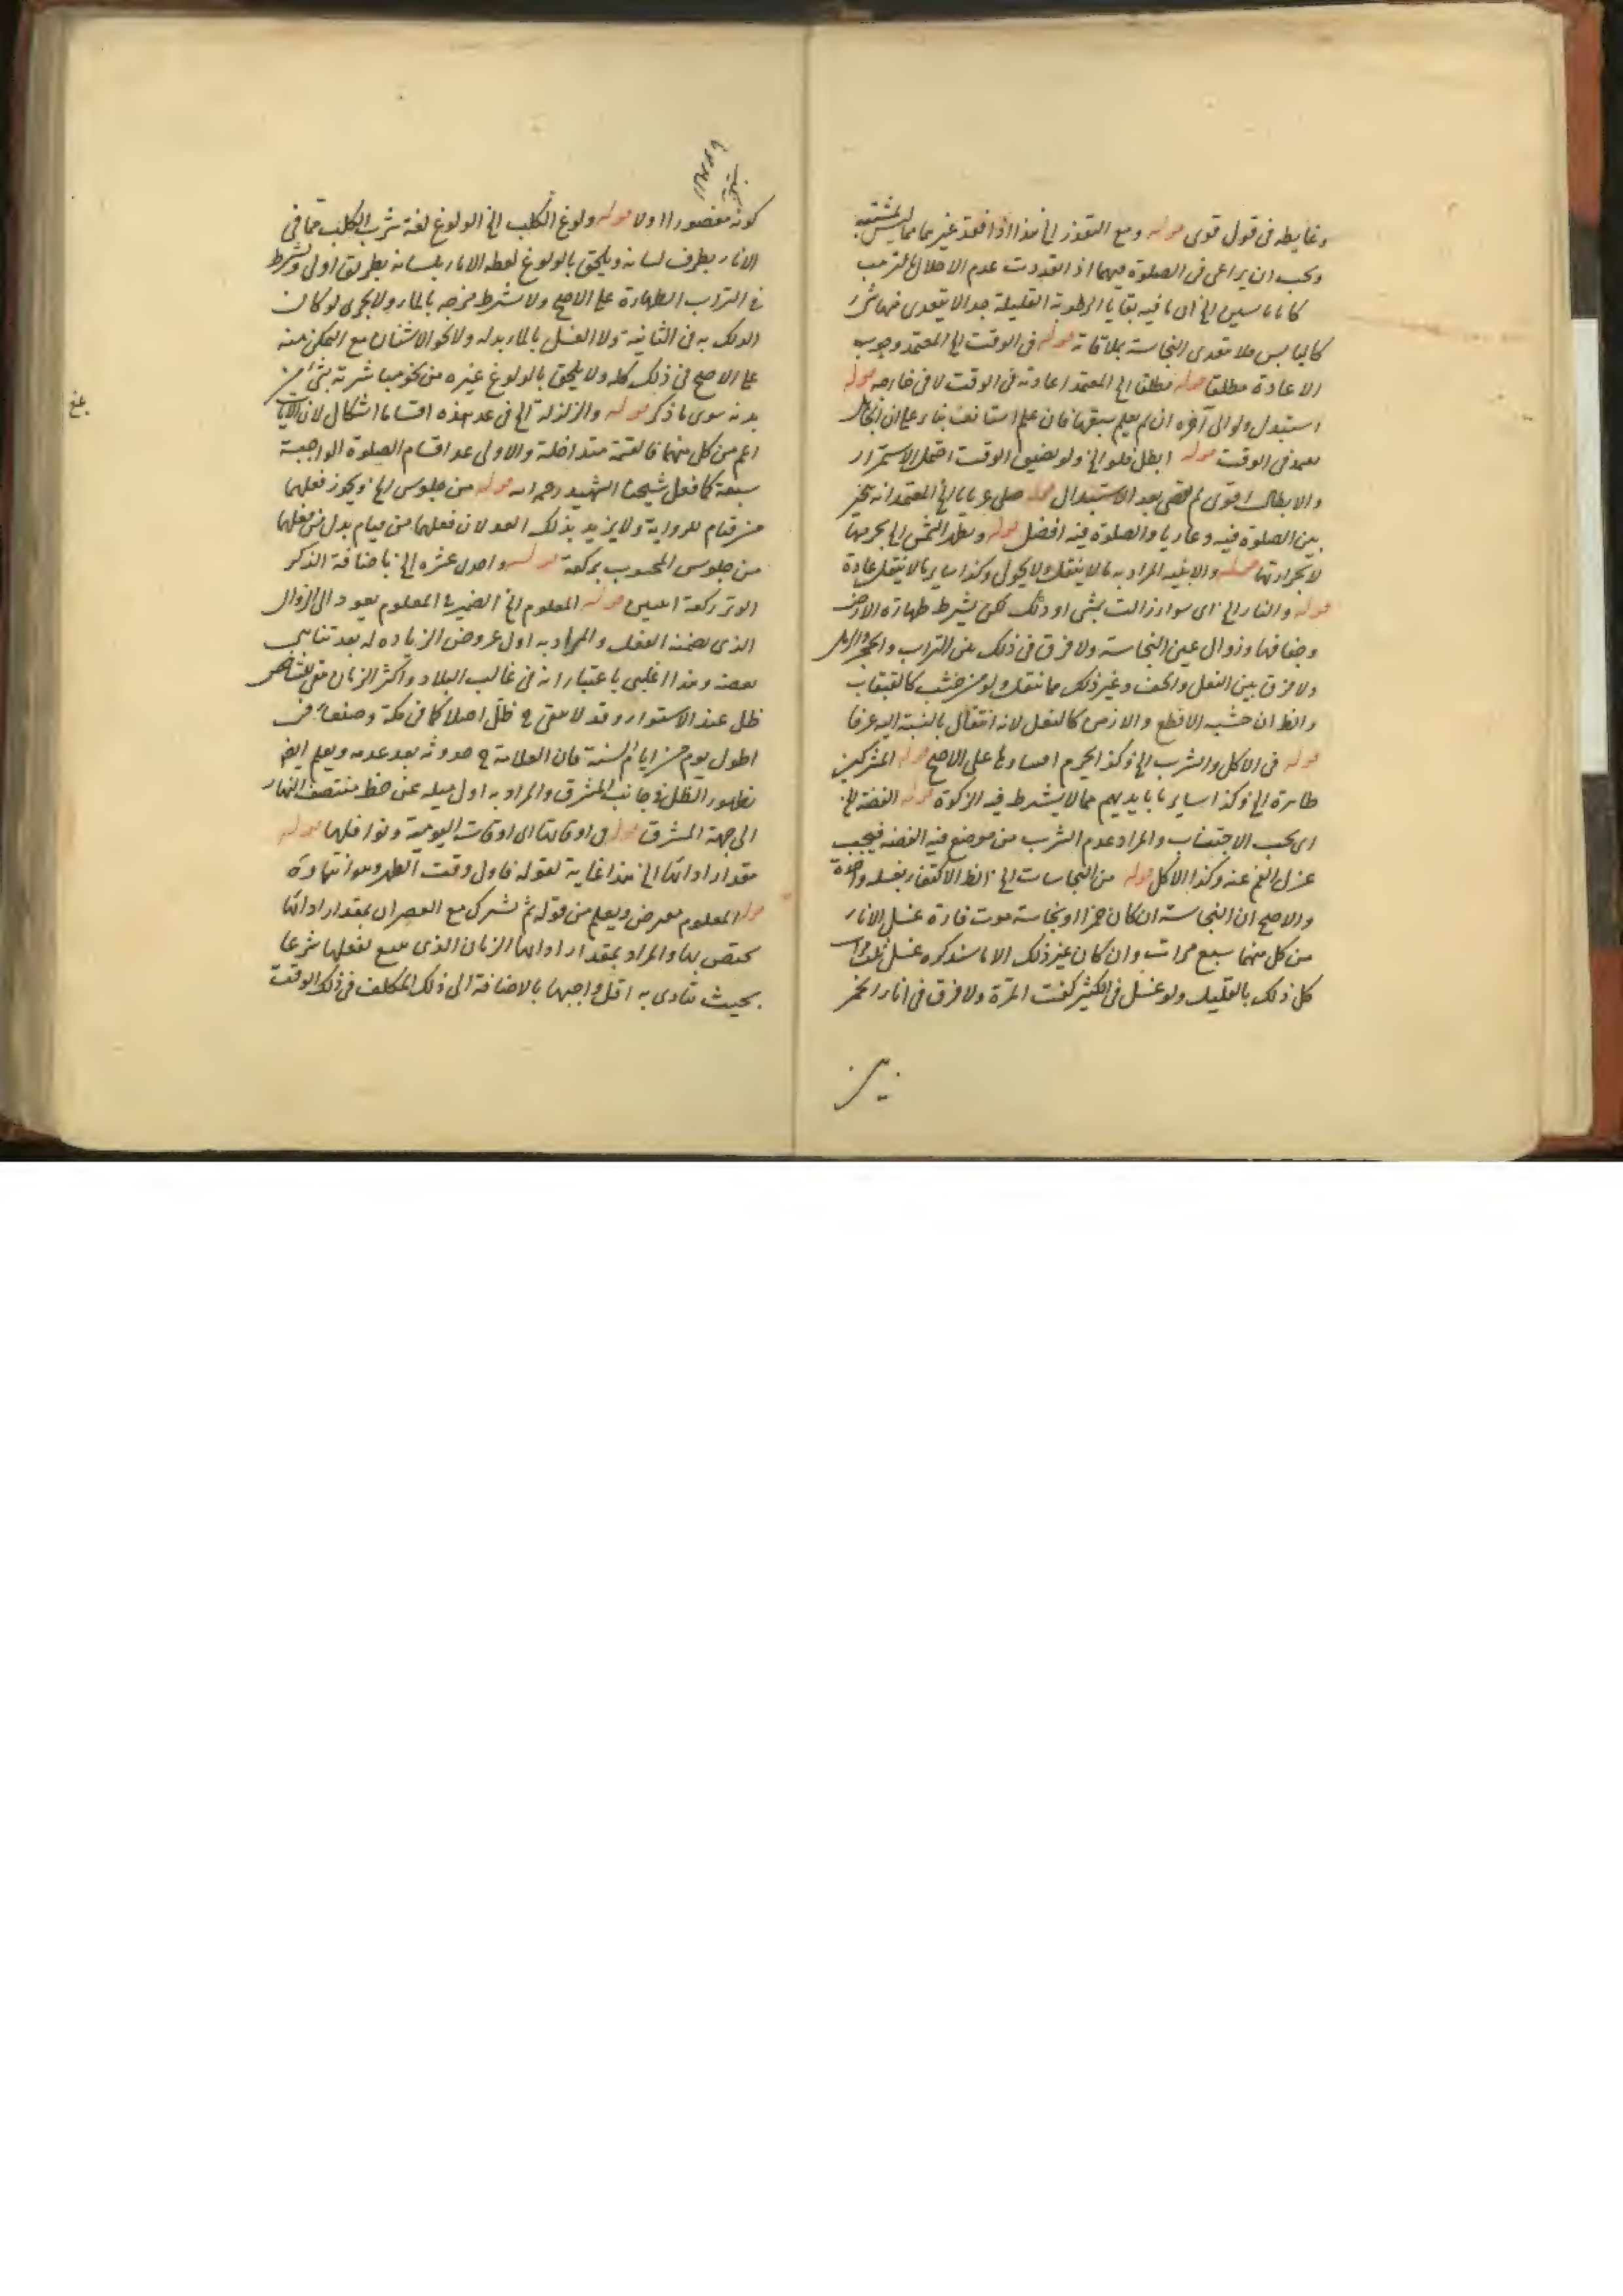 وغايطه فى قول قوى قوله ومع التعذر الخ هذا اذا فقد غيرهما مما ليس بمشتبه
ويجب ان يراعى فى الصلوة فيهما اذا تعددت عدم الاخلال بالترتيب
الخ ان ما فيه بقايا الرطوبة القليلة جدا لا يتعدى
كاليابس فلا تتعدى النجاسة بملاقاته قوله فى الوقت الخ المعتمد وجوب
الاعادة مطلقا قوله مطلقا الخ المعتمد اعادته فى الوقت لا فى خارجه قوله
استبدل ولو الى آخره ان لم يعلم سبقها فان علم استانف بناء على ان الجاهل
يعيد فى الوقت قوله ابطل فلو الخ ولو تضيق الوقت احتمل الاستمرار
والابطال اقوى ثم يقضى بعد الاستبدال قوله صلى عريانا الخ المعتمد انه يتخير
بين الصلوة فيه وعاريا والصلوة فيه افضل قوله وتطهر الشمس الخ بجرمها
لا بحرارتها قوله والابنية المراد به ما لا ينتقل ولا يحول وكذا ساير ما لا ينتقل عادة
قوله والنار الخ اى سواء زالت بمشى او دلك لكن يشترط طهارة الارض
وجفافها وزوال عين النجاسة ولا فرق فى ذلك بين التراب والحجر والرمل
ولا فرق بين النعل والخف وغير ذلك مما ينتعل ولو من خشب كالقبقاب
والظ ان خشبه الاقطع والازمن كالنعل لانه انتعال بالنسبة اليه عرفا
قوله فى الاكل والشرب الخ وكذا يحرم على الاصح قوله المشركين
طاهرة الخ وكذا ساير ما بايديهم مما لا يشترط فيه الزكوة قوله الفضة الخ
اى يجب الاجتناب والمراد عدم الشرب من موضع فيه الفضة فيجب
عزل الفم عنه وكذا الاكل قوله من النجاسات الخ الظ الاكتفاء بغسله واحدة
والاصح ان النجاسة ان كان خمرا او نجاسة موت فارة غسل الاناء
من كل منهما سبع مرات وان كان غير ذلك الا ما سنذكره غسل ثلث مرات
كل ذلك بالقليل ولو غسل فى الكثير كفت المرة ولا فرق فى اناء الخمر
بين
كونه مغضورا اولا قوله ولوغ الكلب الخ الولوغ لغة شرب الكلب مما فى
الاناء بطرف لسانه ويلحق بالولوغ لطعه الاناء بلسانه بطريق اولى ويشترط
فى التراب الطهارة على الاصح ولا يشترط مزجه بالماء ولا يجزى لو كان
الدلك به فى الثانية ولا الغسل بالماء بدله ولا نحو الاشنان مع التمكن منه
على الاصح فى ذلك كله ولا يلحق بالولوغ غيره من نحو مباشرته بشئ من
بدنه سوى ما ذكر قوله والزلزلة الخ فى عد هذه اقساما اشكال لان الايات
اعم من كل منهما فالقسمة متداخلة والاولى عد اقسام الصلوة الواجبة
سبعة كما فعل شيخنا الشهيد رحمه الله قوله من جلوس الخ ويجوز فعلهما
من قيام للرواية ولا يزيد بذلك العدد لان فعلهما من قيام بدل من فعلهما
من جلوس المحسوب بركعة قوله واحدى عشره الخ باضافة الذكر
الوتر ركعة قوله المعلوم الخ الضمير فى المعلوم يعود الى الزوال
الذى تضمنه الفعل والمراد به اول عروض الزياده له بعد تناهى
نقصه وهذا اغلبى باعتبار انه فى غالب البلاد واكثر الزمان
ظل عند الاستواء وقد لا يبقى ح ظل اصلا كما فى مكة وصنعاء فى
اطول يوم من ايام السنة فان العلامة ح حدوثه بعد عدمه ويعلم ايضا
بظهور الظل فى جانب المشرق والمراد به اول ميله عن خط منتصف النهار
الى جهة المشرق قوله فى اوقاتها اى اوقات اليومية ونوافلها قوله
مقدار ادائها الخ هذا غاية لقوله فاول وقت الظهر
قوله المعلوم ويعلم من قوله ثم تشترك مع العصر ان بمقدار ادائها
تختص بها والمراد بمقدار ادائها الزمان الذى يسع لفعلها شرعا
بحيث تتادى به اقل واجبها بالاضافة الى ذلك المكلف فى ذلك الوقت
بلغ